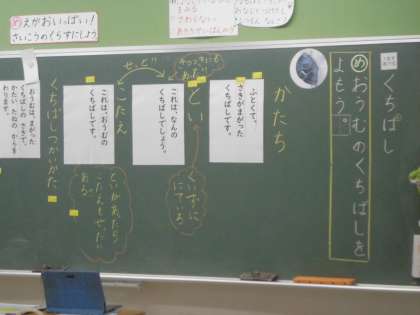 くちばし
めおうむのくちばしを
よもう。
かたち
ふとくて、
さきがまがった
くちばしです。
とい
これは、なんの
くちばしでしょう。
こたえ
これは、おうむの
くちばしです。
くちばしつかいかた
おうむは、まがった
くちばしのさきで、
かたいたねの からを
わります。
といがあったら
こたえもぜったい
ある。
くいずに
にている
めえがおいっぱい!
さいこうめくらすにしよう